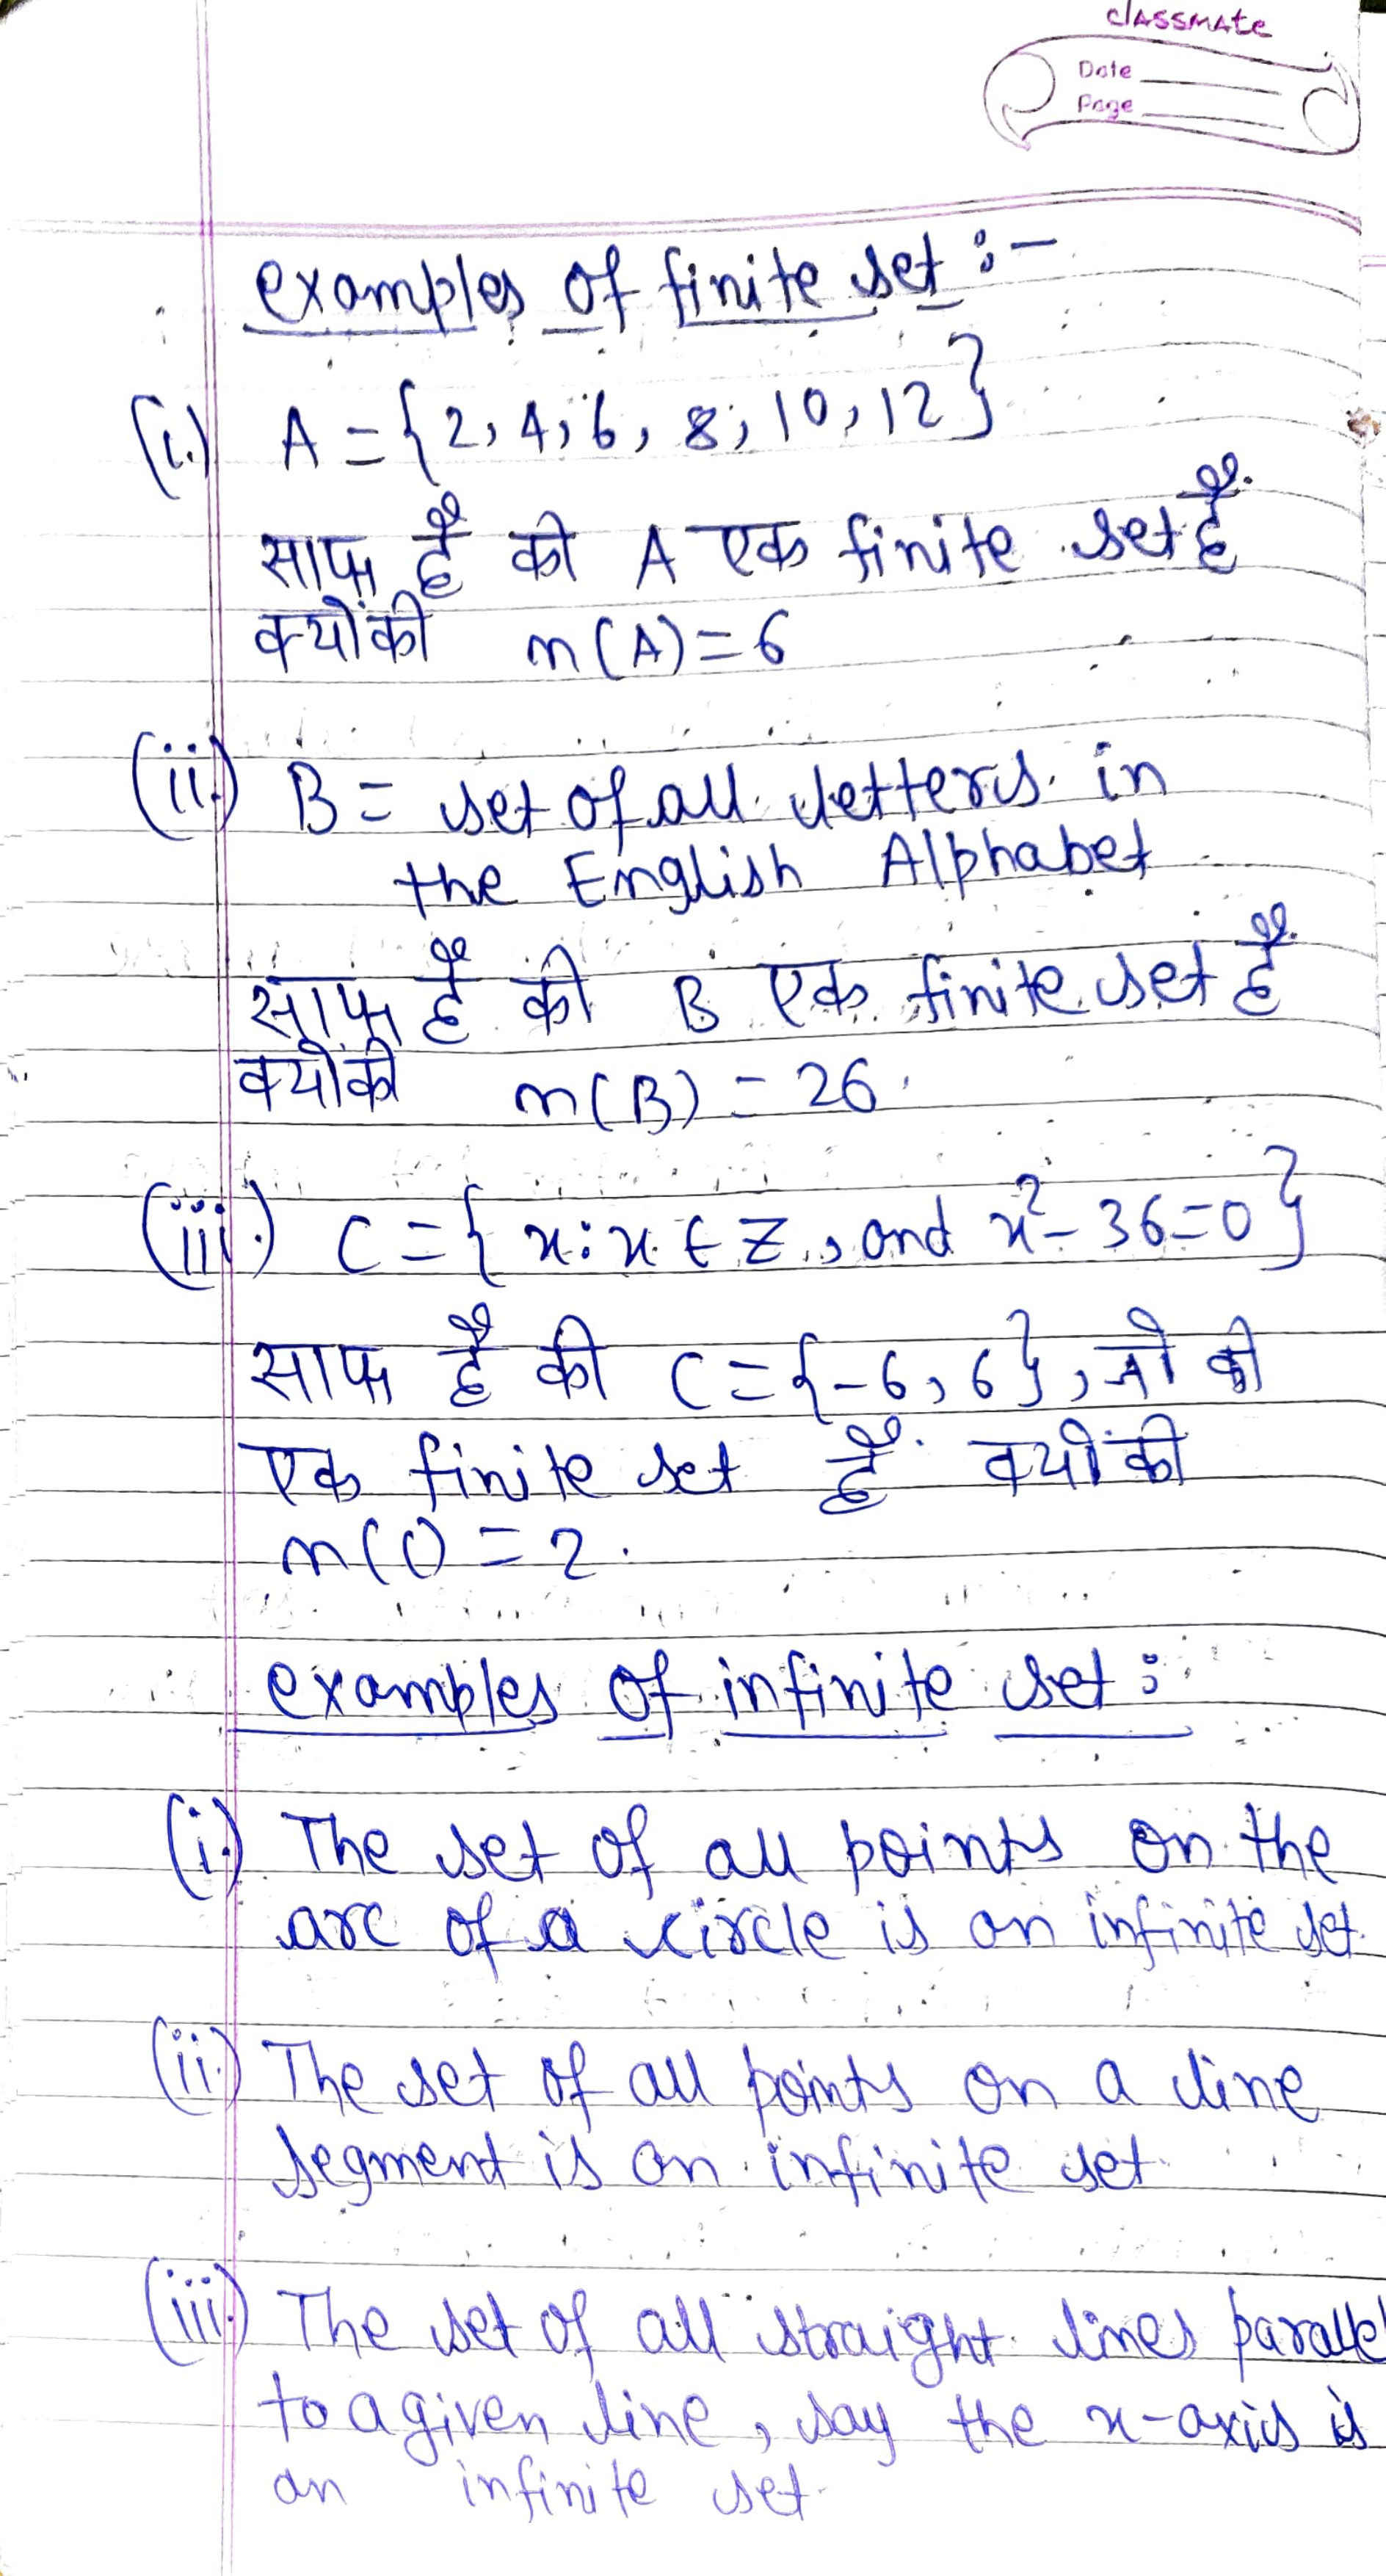 classmate
Date
Page
examples of finite set :-
(i.) A = {2, 4, 6, 8, 10, 12}
साफ़ है की A एक finite set है
क्योंकी n(A) = 6
(ii.) B = set of all letters in
the English Alphabet
साफ़ है की B एक finite set है
क्योंकी n(B) = 26.
(iii.) C = { x : x ∈ Z, and x² - 36 = 0 }
साफ है की C = {-6, 6}, जो की
एक finite set है क्योंकी
n(C) = 2.
examples of infinite set :
(i.) The set of all points on the
arc of a circle is an infinite set.
(ii.) The set of all points on a line
segment is an infinite set.
(iii.) The set of all straight lines parallel
to a given line, say the x-axis is
an infinite set.